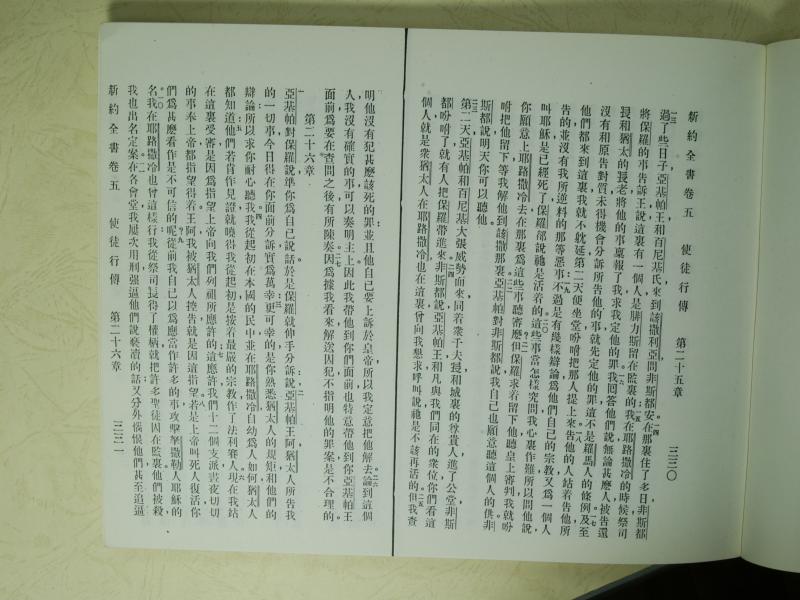 新約全書卷五 使徒行傳 第二十五章 三三〇
過了些日子亞基帕王和百尼基氏來到該撒利亞問非斯都安在那裏住了多日非斯都
將保羅的事告訴王說這裏有一個人是腓力斯留在監裏的我在耶路撒冷的時候祭司
長和猶太的長老將他的事稟報了我求我定他的罪我回答他們說無論甚麼人被告還
沒有和原告對質未得機會分訴所告他的事就先定他的罪這不是羅馬人的條例及至
他們都來到這裏我就不躭延第二天便坐堂吩咐把那人提上來告他的人站着告他所
告的並沒有我所逆料的那等惡事不過是有幾樣辯論為他們自己的宗教又為一個人
叫耶穌是已經死了保羅卻說祂是活着的這些事當怎樣究問我心裏作難所以問他說
你願意上耶路撒冷去在那裏為這些事聽審麼但保羅求着留下他聽皇上審判我就吩
咐把他留下等我解他到該撒那裏亞基帕對非斯都說我自己也願意聽這個人的供非
斯都說明天你可以聽他
第二天亞基帕和百尼基大張威勢而來同着衆千夫長和城裏的尊貴人進了公堂非斯
都吩咐了就有人把保羅帶進來非斯都說亞基帕王和凡與我們同在的衆位你們看這
個人就是衆猶太人在耶路撒冷也在這裏曾向我懇求呼叫說祂是不該再活的但我查
明他沒有犯甚麼該死的罪並且他自己要上訴於皇帝所以我定意把他解去論到這個
人我沒有確實的事可以奏明主上因此我帶他到你們面前也特意帶他到你亞基帕王
面前為要在查問之後有所陳奏因為據我看來解送囚犯不指明他的罪案是不合理的
第二十六章
亞基帕對保羅說準你為自己說話於是保羅就伸手分訴說亞基帕王阿猶太人所告我
的一切事今日得在你面前分訴實為萬幸更可幸的是你熟悉猶太人的規矩和他們的
辯論所以求你耐心聽我我從起初在本國的民中並在耶路撒冷自幼為人如何猶太人
都知道他們若肯作見證就曉得我從起初是按着最嚴的宗教作了法利賽人現在我站
在這裏受審是因為指望上帝向我們列祖所應許的這應許我們十二個支派晝夜切切
的事奉上帝都指望得着王阿我被猶太人控告就是因這指望若是上帝叫死人復活你
們為甚麼看作是不可信的呢從前我自己以為應當作許多的事攻擊拿撒勒人耶穌的
名我在耶路撒冷也曾這樣行我從祭司長得了權柄就把許多聖徒囚在監裏他們被殺
我也出名定案在各會堂我屢次用刑强逼他們說褻瀆的話又分外惱恨他們甚至追逼
新約全書卷五 使徒行傳 第二十六章 三三一